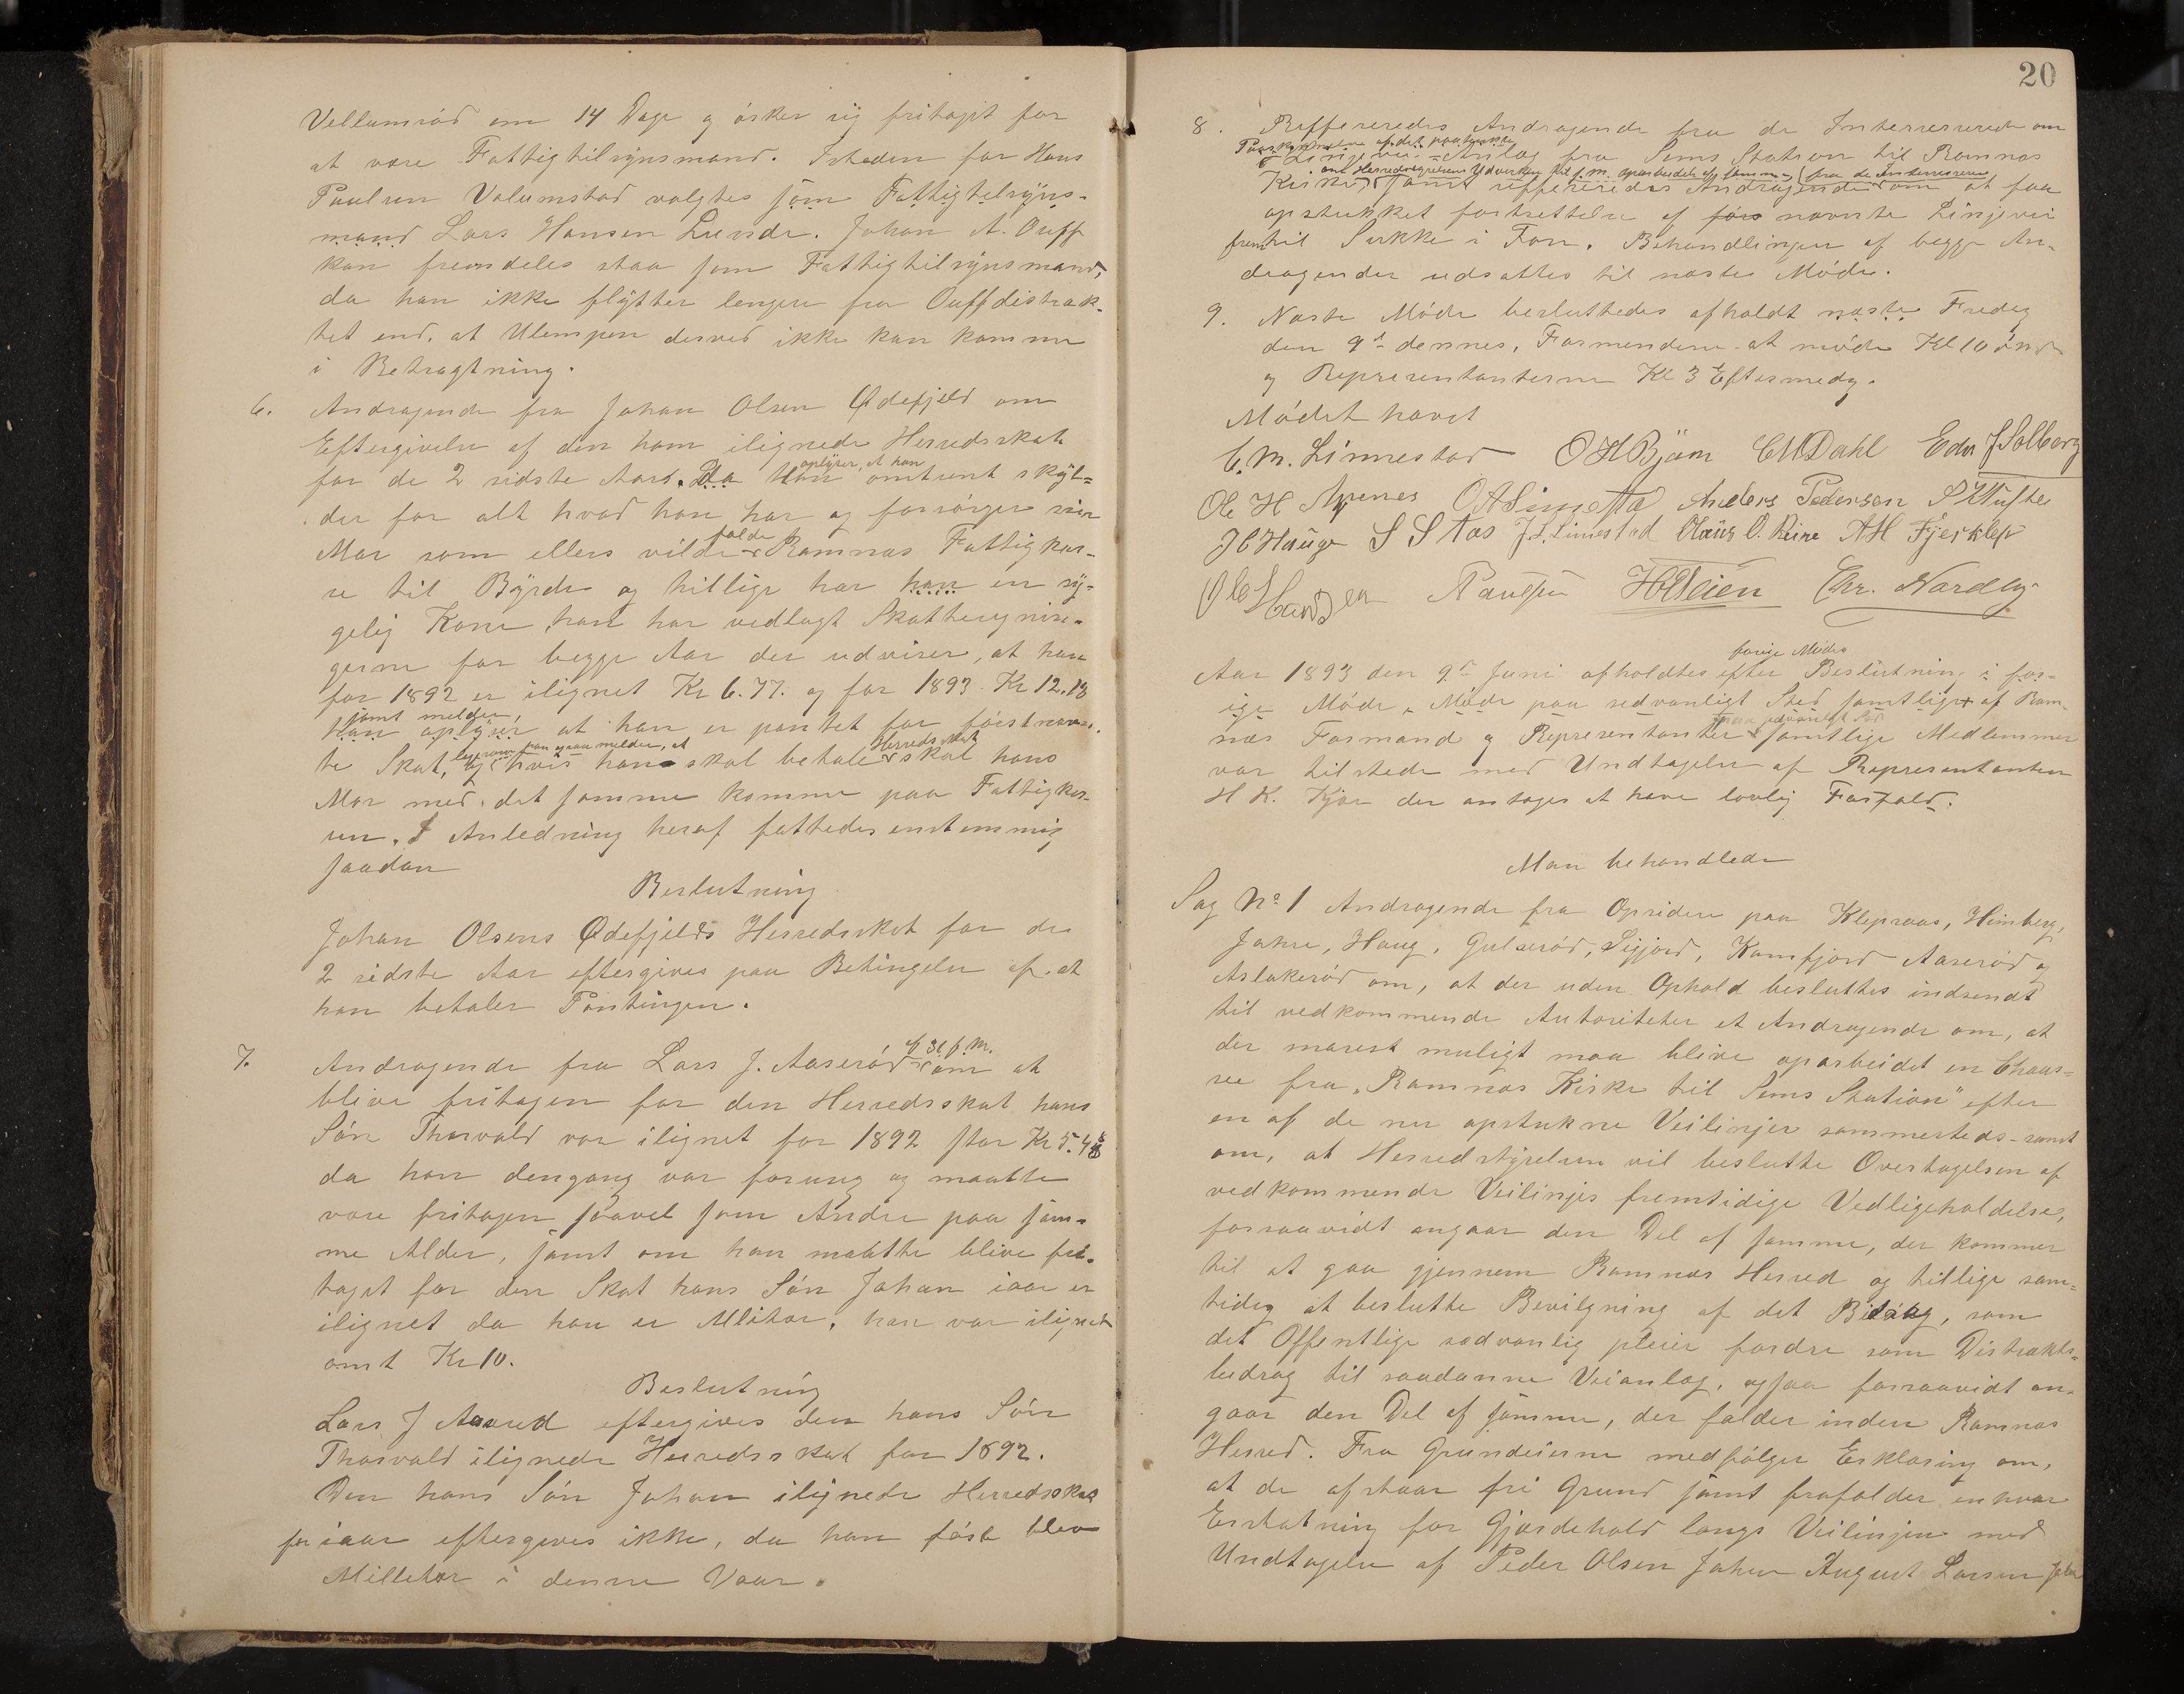 Vellumsrød om 14 Dage og øsker sig fritaget for
at være Fattigtilsynsmand. Isteden for Hans
Paulsen Valumstad valgtes som Fattigtilsyns-
mand Lars Hansen Lunde. Johan A. Ouff
kan fremdeles staa som Fattigtilsynsmand,
da han ikke flytter lengere fra Ouffdistrak-
tet end, at Ulempen derved ikke kan komme
i Betragtning.
6. Andragende fra Johan Olsen Ødefjeld om
Eftergivelse af den ham ilignede Herredsskat
for de 2 sidste Aar. Da Han oplyser, at han omtrent skyl-
der for alt hvad han har og forsørger sin
Mor som ellers vilde falde Ramnæs Fattigkas-
se til Byrde og tillige har han en sy-
gelig Kone, han har vedlagt Skatteregnin-
gerne for begge Aar der udviser, at han
for 1892 er ilignet Kr 6.77. og for 1893 Kr 12.18
samt melder,
Han oplyser at han er pantet for førstnævn-
ligesom han ogsaa melder, at Herredsskat
te Skat, og hvis han skal betale skal hans
Mor med det samme komme paa Fattigkas-
sen. I Anledning heraf fattedes enstemmig
saadan
Beslutning
Johan Olsens Ødefjelds Herredsskat for de
2 sidste Aar eftergives paa Betingelse af at
han betaler Pantingen.
7. Andragende fra Lars J. Aaserød af 31 f.m. om at
blive fritagen for den Herredsskat hans
Søn Thorvald var ilignet for 1892 stor Kr 5.48
da han dengang var forung og maatte
være fritagen saavel som Andre paa sam-
me Alder, samt om han maatte blive fri-
taget for den Skat hans Søn Johan iaar er
ilignet da han er Militær, han var ilignet
omt Kr 10.
Beslutning
Lars J Aaserød eftergives den hans Søn
Thorvald ilignede Herredsskat for 1892.
Den hans Søn Johan ilignede Herredsskat
for iaar eftergives ikke, da han først blev
Militær i denne Vaar.
20
8. Reffereredes Andragende fra de Interresserede om
Paaskyndelse af det paatænkte
Linjevei-Anlæg fra Sems Station til Ramnæs
om Herredsstyrelsens Udvirken til f.m. oparbeidelse af samme fra de Interresserede
Kirke, samt reffereredes Andragende om at faa
opstukket fortsettelse af førs nævnte Linjevei
frem til Sukke i Fon. Behandlingen af begge An-
dragender udsattes til næste Møde.
9. Næste Møde besluttedes afholdt næste Fredag
den 9de dennes, Formændene at møde Kl 10
og Representanterne Kl 3 Eftermedag.
Mødet hævet
C. M. Linnestad O H Bjørn C M Dahl Edv J Solberg
Ole H Apenes Anders Pedersen
J C Hauge S S Aas J. S. Linnestad Olaus O. Reine A H Fjerklep
Ole Hansen Paulsen Chr. Nordby
forige Mødes
Aar 1893 den 9de Juni afholdtes efter Beslutning i for-
ige Møde, Møde paa sedvanligt Sted samtlige af Ram-
paa sedvanligt Sted
næs Formænd og Representanter samtlige Medlemmer
var tilstede med Undtagelse af Representanten
H K. Kjær der antages at have lovlig Forfald.
Man behandlede
Sag No 1 Andragende fra Opsidere paa Klepraas, Himberg,
Jahre, Haug, Gulserød, Sigjord, Kamfjord Aaserød og
Aslakerød om, at der uden Ophold besluttes indsendt
til vedkommende Autoriteter et Andragende om, at
der snarest muligt maa blive oparbeidet en Chaus-
see fra „Ramnæs Kirke til Sems Station" efter
en af de nu opstukne Veilinjer sammesteds – samt
om, at Herredstyrelsen vil beslutte Overtagelsen af
vedkommende Veilinjes fremtidige Vedligeholdelse,
forsaavidt angaar den Del af samme, der kommer
til at gaa gjennem Ramnæs Herred og tillige sam-
tidig at beslutte Bevilgning af det Bidrag, som
det Offentlige sædvanlig pleier fordre som Distrikts-
bidrag til saadanne Veianlæg, ogsaa forsaavidt an-
gaar den Del af samme, der falder inden Ramnæs
Herred. Fra Grundeierne medfølger Erklæring om,
at de afstaar fri Grund samt frafalder enhver
Erstatning for Gjærdehold langs Veilinjen med
Undtagelse af Peder Olsen Jahre August Larsen